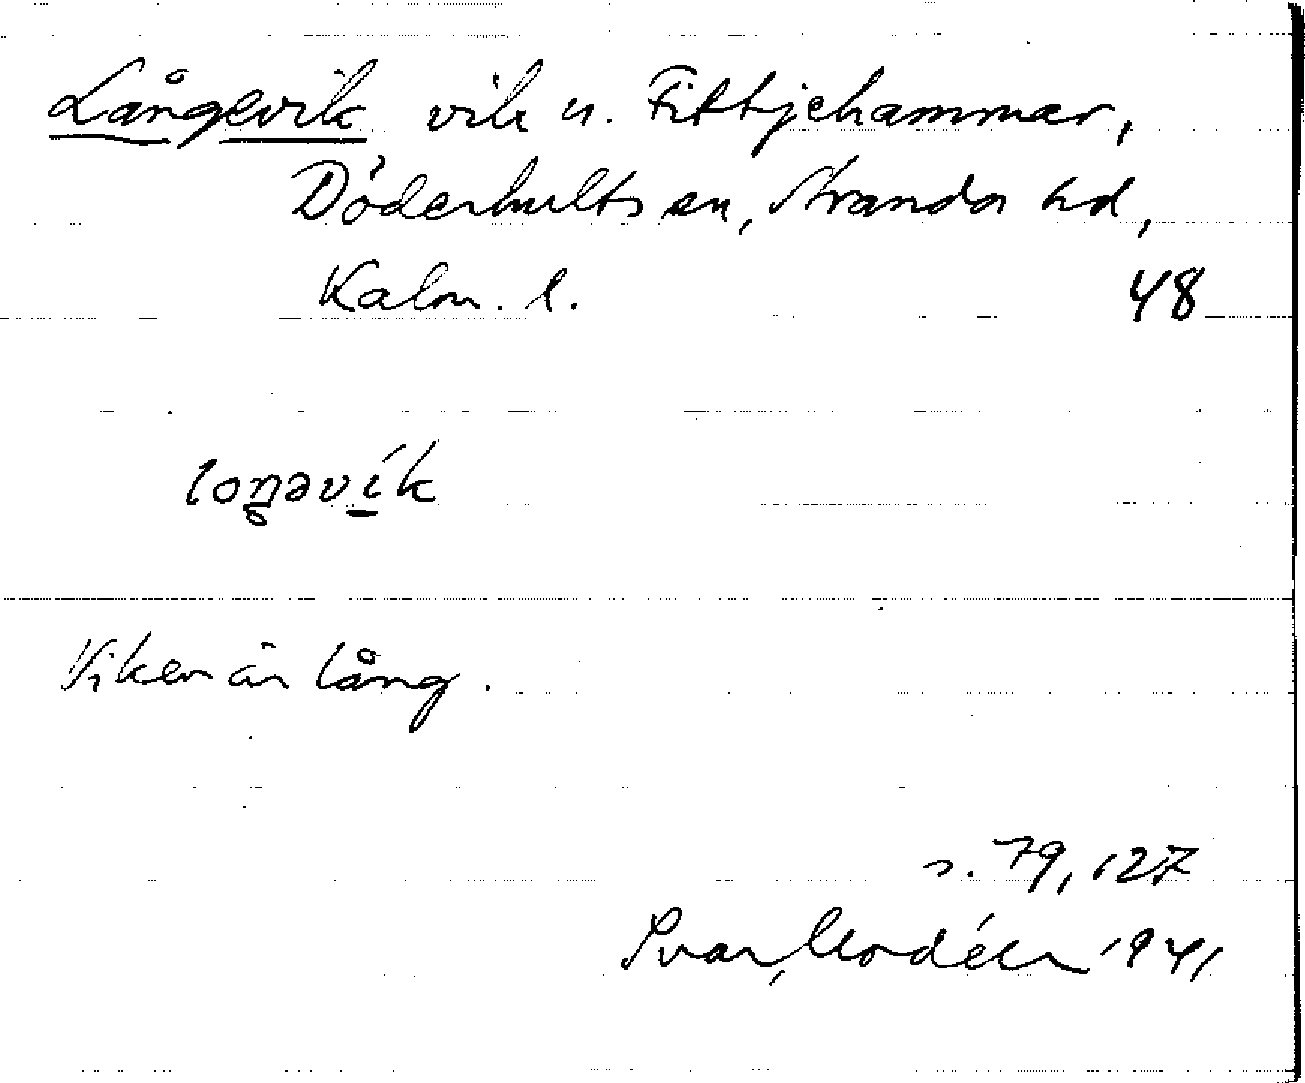 Långevik vik u. Fittjehammar,
Döderhults sn, Stranda hd,
Kalm. l. 48
loŋəvík
Viken är lång.
s. 79, 127
Ivar Modéer 1941